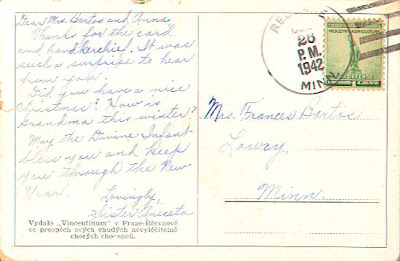 Dear Mrs. Bartos and Anna
Thanks for the card
and handkerchief. It was
such a surprise to hear
from you.
Did you have a nice
Christmas? How is
Grandma this winter?
May the Divine Infant
bless you and keep
you through the New
Year.
Lovingly,
Sister Aniceta
Vydalo „Vincentinum" v Praze-Břevnově
ve prospěch svých chudých nevyléčitelně
chorých chovanců.
26
P.M.
1942
MINN.
INDUSTRY AGRICULTURE
DEFENSE
Mrs. Frances Bartos
Lowry,
Minn.